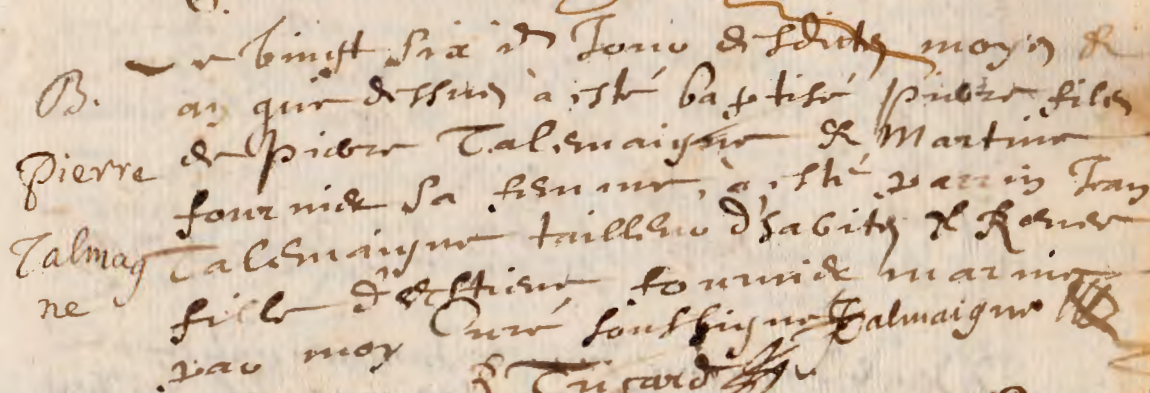 B.
Pierre
Talmag
ne
Le vingt six de Jour desdictz moys &
an que dessus à esté baptisé Pierre filz
de Pierre Talemaigne & Martine
fournier sa femme, à esté parrin Jean
Talemaigne tailleur d'habitz & Renee
fille d'estiene fournier marine
par moy Curé soubssigne Talmaigne